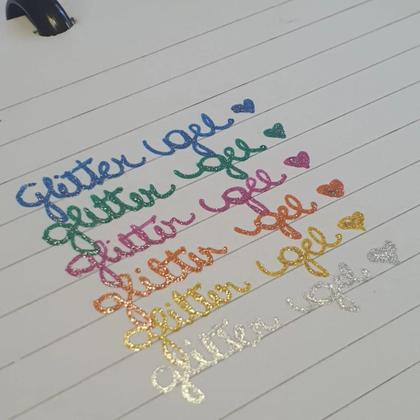 Glitter gel ♥
glitter gel ♥
glitter gel ♥
glitter gel ♥
glitter gel ♥
glitter gel ♥